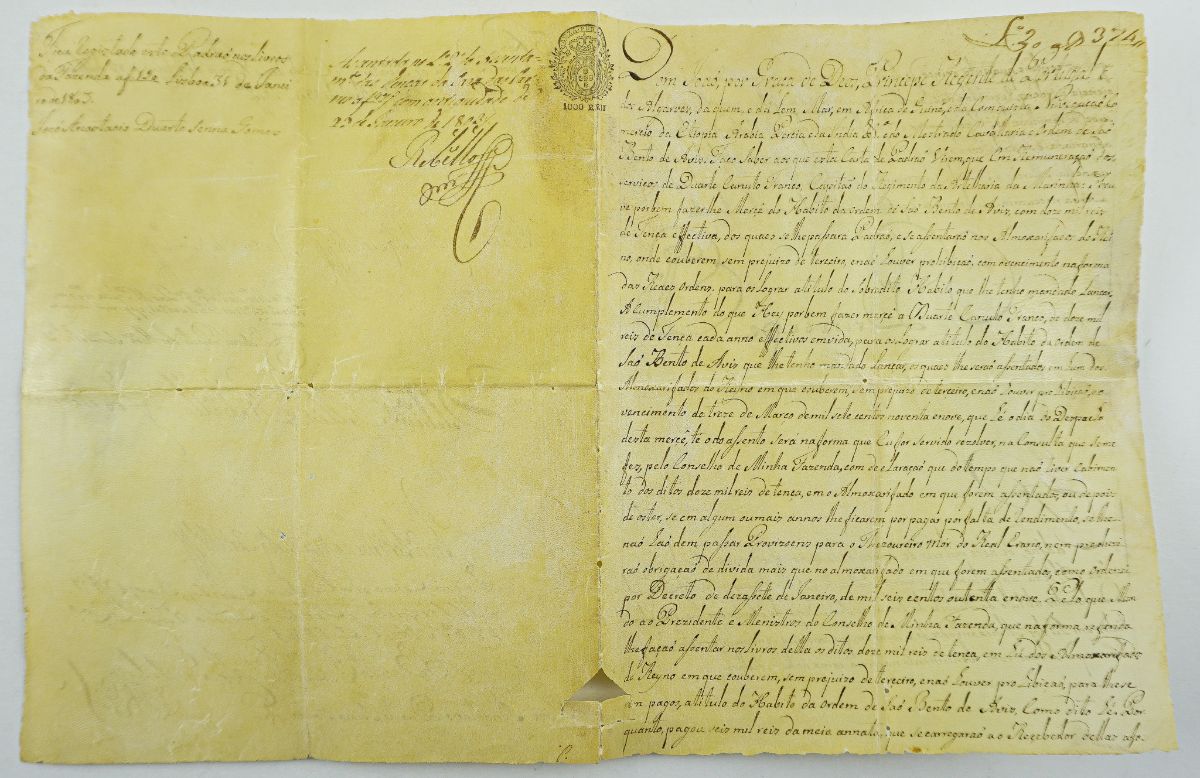 Fica Registado este Padraõ nos livros
da Fazenda af 132 Lisboa 31 de Janei
ro de 1803.
José Anastacio Duarte Senna Gomes
25 de Janeiro de 1803
Rebello
1000 REIS
374
Dom Joaõ por Graça de Deos, Principe Regente de Portugal, e
dos Algarves, da quem, e da lem Mar, em Africa de Guiné, e da Conquista, Navegaçaõ Co
mercio da Etiopia Arabia Persia e da India &c. e do Mestrado Cavallaria e Ordem de Saõ
Bento de Aviz. Faço Saber aos que esta Carta de Padraõ Virem, que Em Remuneraçaõ dos
serviços de Duarte Franco, Capitaõ do Regimento da Artelharia da Marinha: Hou
ve por bem fazerlhe Mercê do Habito da Ordem de Saõ Bento de Aviz, com doze mil reis
de Tença effectiva, dos quaes se lhe passara Padraõ, e se assentaraõ nos Almoxarifados do Rei
no, onde couberem sem prejuizo de terceiro, e naõ houver prohibiçaõ, com o vencimento na forma
das Reaes Ordens. para os lograr a titulo do Sobredito Habito que lhe tenho mandado Lançar,
A Cumplemento do que Hey por bem fazer mercê a Duarte Franco, de doze mil
reis de Tença cada anno effectivos em vida, para os lograr a titulo do Habito da Ordem de
Saõ Bento de Aviz que lhe tenho mandado Lançar, os quaes lhe seraõ assentados em hum dos
Almoxarifados do Reyno em que couberem, sem prejuizo de terceiro, e naõ houver prohibiçaõ, e o
vencimento de treze de Março de mil sete centos noventa e nove, que hé o dia do Despacho
desta mercê, té o do assento será na forma que Eu for servido rezolver, na Consulta que se me
fez, pelo Conselho de Minha Fazenda, com declaraçaõ que do tempo que naõ tiver Cabimen
to dos ditos doze mil reis de tença, em o Almoxarifado em que forem assentados, ou depois
de o ter, se em algum ou mais annos lhe ficarem por pagar por falta de Rendimento, se lhe
naõ haõ dem passar Provizoens para o Thezoureiro Mor do Real Erario, nem produzi
raõ obrigaçaõ de divida mais que no almoxarifado em que forem assentados, como Ordenei
por Decreto de dezassete de Janeiro, de mil seis centos outenta e nove. Pelo que Man
do ao Prezidente e Menistros do Conselho de Minha Fazenda, que na forma referida
lhe façaõ assentar nos livros della os ditos doze mil reis de tença, em hú dos Almoxarifados
do Reyno em que couberem, sem prejuizo de terceiro, e naõ houver prohibiçaõ, para lhe se
rem pagos, a titulo do Habito da Ordem de Saõ Bento de Aviz, Como dito hé. Por
quanto, pagou seis mil reis da meia annata, que se carregaraõ ao Recebedor dellas a fo.